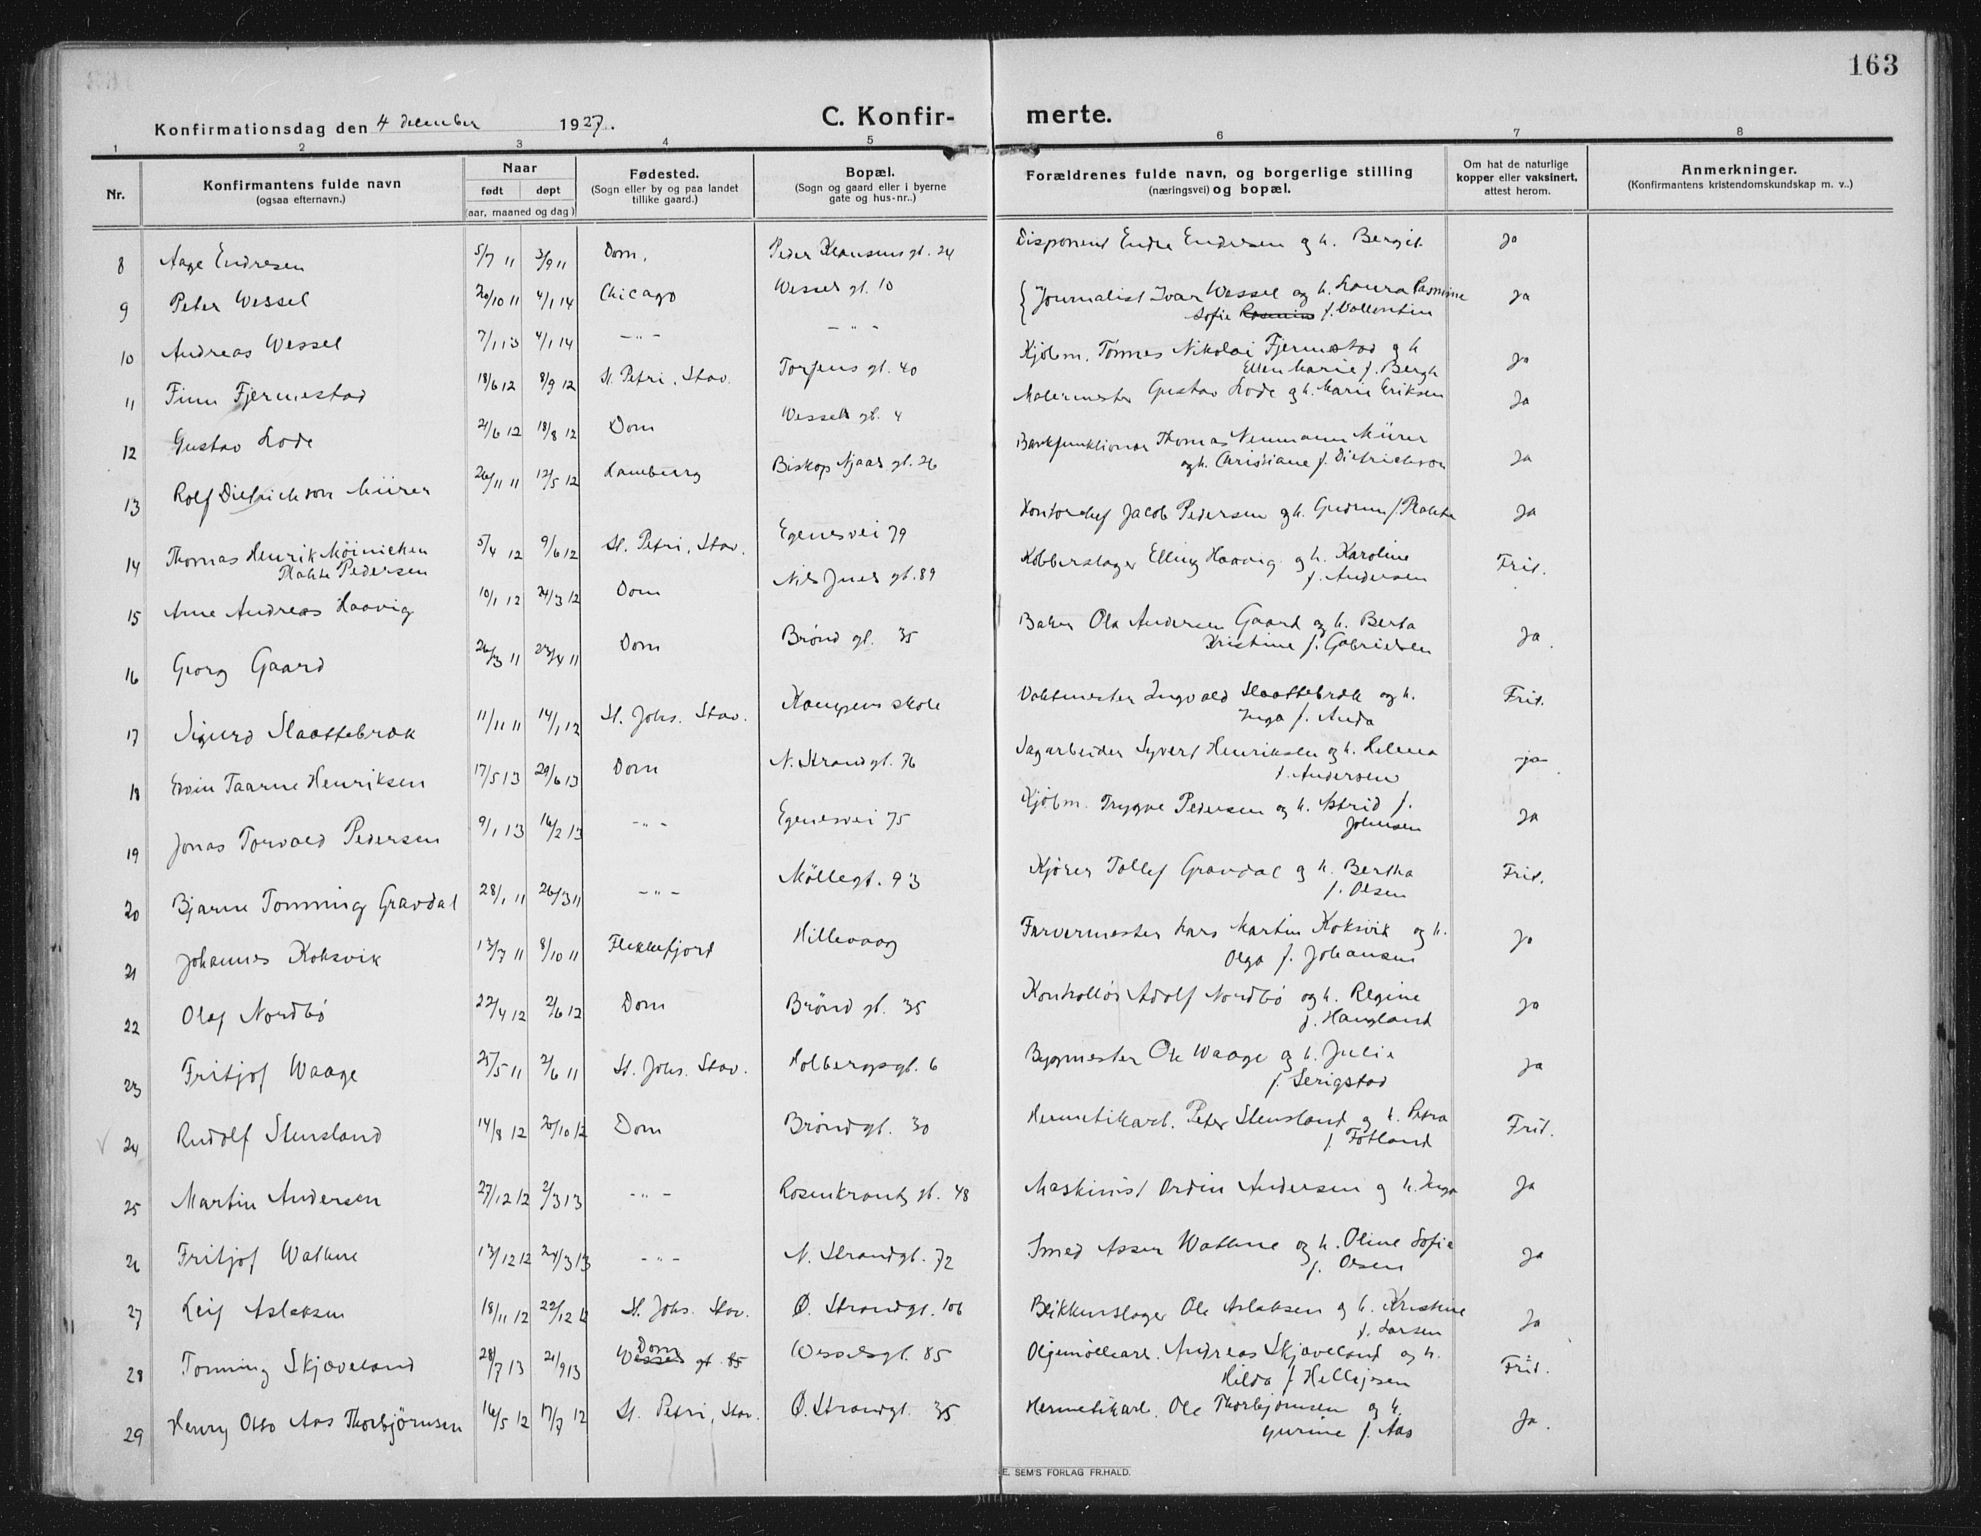 163
Konfirmationsdag den 4 december 1927.
C. Konfir- merte.
1 2 3 4 5 6 7 8
Nr.
Konfirmantens fulde navn
(ogsaa efternavn.)
Naar
født døpt
(aar, maaned og dag)
Fødested.
(Sogn eller by og paa landet
tillike gaard.)
Bopæl.
(Sogn og gaard eller i byerne
gate og hus-nr..)
Forældrenes fulde navn, og borgerlige stilling
(næringsvei) og bopæl.
Om hat de naturlige
kopper eller vaksinert,
attest herom.
Anmerkninger.
(Konfirmantens kristendomskundskap m. v..)
8 Aage Endresen 5/7 11 3/9 11 Dom. Peder Klausens gt. 24 Disponent Endre Endresen og h. Bergit Ja
9 Peter Wessel 20/10 11 4/1 14 Chicago Wessels gt. 10 { Journalist Ivar Wessel og h. Laura Rasmine Ja
Sofie f. Vallentin
10 Andreas Wessel 7/1 13 4/1 14 -"- -"-
11 Finn Fjermestad 18/6 12 8/9 12 St. Petri, Stav. Torfeus gt. 40 Kjøbm. Tønnes Nikolai Fjermestad og h Ja
Ellen Marie f. Bergh
12 Gustav Lode 21/6 12 18/8 12 Dom Wessels gt. 4 Malermester Gustav Lode og h. Marie Eriksen Ja
13 Rolf Dietrichson Mürer 26/11 11 12/5 12 Hamburg Biskop Njaals gt. 26 Bankfunktionær Thomas Neumann Mürer Ja
og h. Christiane f. Dietrichson
14 Thomas Henrik Møinichen 5/4 12 9/6 12 St. Petri, Stav. Egenesvei 79 Kontorchef Jacob Pedersen og h. Gudrun f. Plahte Ja
Plahte Pedersen
15 Arne Andreas Haavig 10/1 12 24/3 12 Dom Nils Juels gt. 89 Kobberslager Elling Haavig og h. Karoline Frit.
f. Andersen
16 Georg Gaard 26/3 11 23/4 11 Dom Brønd gt. 35 Baker Ola Andersen Gaard og h. Berta Ja.
Kristine f. Gabrielsen
17 Sigurd Slaattebræk 11/11 11 14/1 12 St. Johs. Stav. Kampens skole Vaktmester Ingvald Slaattebræk og h. Frit.
Inga f. Anda
18 Edvin Taarne Henriksen 17/5 13 29/6 13 Dom N. Strandgt. 76 Sagarbeider Syvert Henriksen og h. Helma ja
f. Andersen
19 Jonas Torvald Pedersen 9/1 13 16/2 13 -"- Egenesvei 75 Kjøbm. Trygve Pedersen og h. Astrid f. Ja
Johnsen
20 Bjarne Tonning Gravdal 28/1 11 26/3 11 -"- Møllegt. 93 Kjører Tollef Gravdal og h. Bertha Frit.
f. Olsen
21 Johannes Koksvik 13/7 11 8/10 11 Flekkefjord Hillevaag Farvermester Lars Martin Koksvik og h. Ja
Olga f. Johansen
22 Olaf Nordbø 22/4 12 2/6 12 Dom Brønd gt. 35 Kontrollør Adolf Nordbø og h. Regine Ja
f. Haugland
23 Fritjof Waage 25/5 11 2/6 11 St. Johs. Stav. Holbergsgt. 6 Bygmester Ole Waage og h. Julie Ja
f. Serigstad
24 Rudolf Stensland 14/8 12 20/10 12 Dom Brøndgt. 30 Hermetikarb. Peter Stensland og h. Petra Frit.
f. Fotland
25 Martin Andersen 27/12 12 2/3 13 -"- Rosenkrantz gt. 48 Maskinist Ordin Andersen og h. Inga Ja
26 Fritjof Wathne 13/12 12 24/3 13 -"- N. Strandgt. 72 Smed Asser Wathne og h. Oline Sofie Ja
f. Olsen
27 Leif Aslaksen 18/11 12 22/12 12 St. Johs. Stav. Ø. Strandgt. 106 Blikkenslager Ole Aslaksen og h. Kristine Ja
f. Larsen
28 Tonning Skjæveland 28/7 13 21/9 13 Dom Wessels gt. 85 Wesselsgt. 85 Oljemøllearb. Andreas Skjæveland og h. Frit.
Hilda f. Helliesen
29 Henry Otto Aas Thorbjørnsen 16/5 12 17/7 12 St. Petri, Stav. Ø. Strandgt. 35 Hermetikarb. Ole Thorbjørnsen og h. Ja.
Gurine f. Aas
E. SEM'S FORLAG FR.HALD.